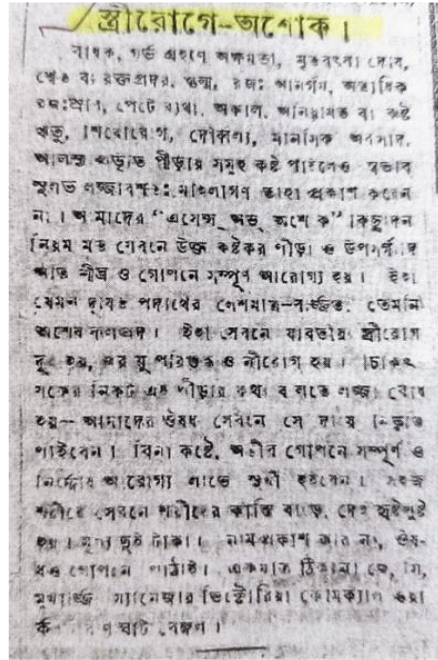 স্ত্রীরোগে-অশোক।
বাধক, গর্ভ গ্রহণে অক্ষমতা, মৃতবৎসা দোষ,
শ্বেত বা রক্তপ্রদর, গুল্ম, রজঃ আনর্গম, অত্যধিক
রজঃস্রাব, পেটে ব্যথা, অকাল, অনিয়মিত বা কষ্ট
ঋতু, শিরোরোগ, দৌর্ব্বল্য, মানসিক অবসাদ,
আলস্য প্রভৃতি পীড়ায় সমূহ কষ্ট পাইলেও স্বভাব
সুলভ লজ্জাবশতঃ মহিলাগণ তাহা প্রকাশ করেন
না। আমাদের "এসেন্স্ অভ্ অশোক" কিছুদিন
নিয়ম মত সেবনে উক্ত কষ্টকর পীড়া ও উপসর্গাদি
অতি শীঘ্র ও গোপনে সম্পূর্ণ আরোগ্য হয়। ইহা
যেমন দূষিত পদার্থের লেশমাত্র-বর্জ্জিত, তেমনি
অশেষ ফলপ্রদ। ইহা সেবনে যাবতীয় স্ত্রীরোগ
দূর হয়, জরায়ু পরিষ্কৃত ও নীরোগ হয়। চিকিৎ
সকের নিকট এই পীড়ার কথা বলিতে লজ্জা বোধ
হয়— আমাদের ঔষধ সেবনে সে দায়ে নিষ্কৃতি
পাইবেন। বিনা কষ্টে, অতীব গোপনে সম্পূর্ণ ও
নির্দ্দোষ আরোগ্য লাভে সুখী হইবেন। সহজ
শরীরে সেবনে শরীরের কান্তি বাড়ে, দেহ হৃষ্টপুষ্ট
হয়। মূল্য দুই টাকা। নাম প্রকাশ করি না, ঔষ-
ধও গোপনে পাঠাই। একমাত্র ঠিকানা জে, সি,
মুখার্জ্জি ম্যানেজার ভিক্টোরিয়া কেমিক্যাল ওয়া
র্ক ঘাট বেঙ্গল।